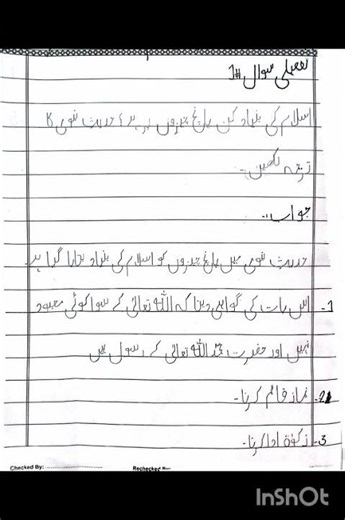 تفصیلی سوال #1
اسلام کی بنیاد کن پانچ چیزوں پر ہے؟ حدیث نبوی کا
ترجمہ لکھیں۔
جواب:
حدیث نبوی میں پانچ چیزوں کو اسلام کی بنیاد بتایا گیا ہے۔
1۔ اس بات کی گواہی دینا کہ اللہ تعالیٰ کے سوا کوئی معبود
نہیں اور حضرت محمد اللہ تعالیٰ کے رسول ہیں
2۔ نماز قائم کرنا۔
3۔ زکوٰۃ ادا کرنا۔
Checked By: Rechecked By:
InShOt